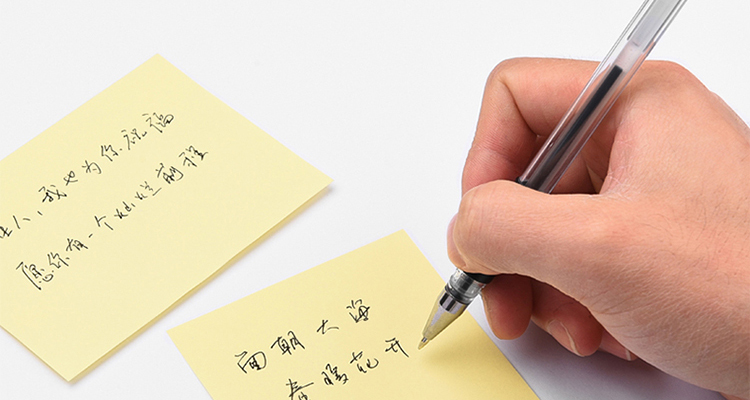 生人，我也为你祝福
愿你有一个灿烂前程
面朝大海
春暖花开